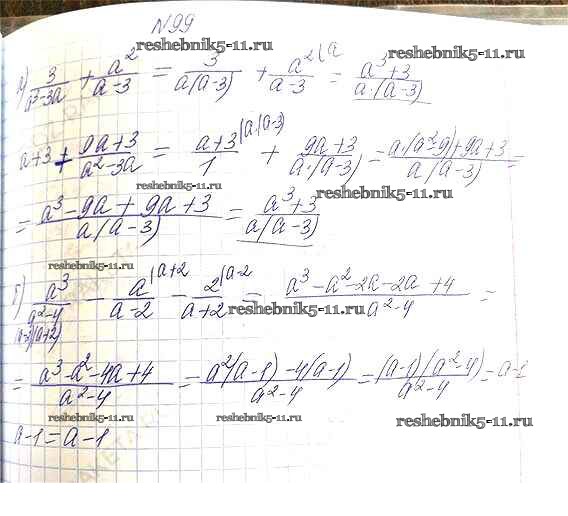 №99
reshebnik5-11.ru
а) 3/(a²-3a) + a²/(a-3) = 3/(a(a-3)) + a²(a/(a-3) = (a³+3)/(a·(a-3))
reshebnik5-11.ru reshebnik5-11.ru
a+3 + (9a+3)/(a²-3a) = (a+3)/1 (a·(a-3) + (9a+3)/(a·(a-3)) = (a·(a²-9)+9a+3)/(a(a-3)) =
reshebnik5-11.ru reshebnik5-11.ru
= (a³-9a+9a+3)/(a(a-3)) = (a³+3)/(a(a-3))
reshebnik5-11.ru
б) a³/(a²-4) - a/(a-2) (a+2 - 2/(a+2) (a-2 = (a³-a²-2a-2a+4)/(a²-4) =
(a-2)(a+2)
reshebnik5-11.ru reshebnik5-11.ru
= (a³-a²-4a+4)/(a²-4) = (a²(a-1)-4(a-1))/(a²-4) = ((a-1)(a²-4))/(a²-4) = a-1
reshebnik5-11.ru reshebnik5-11.ru reshebnik5-11.ru
a-1=a-1